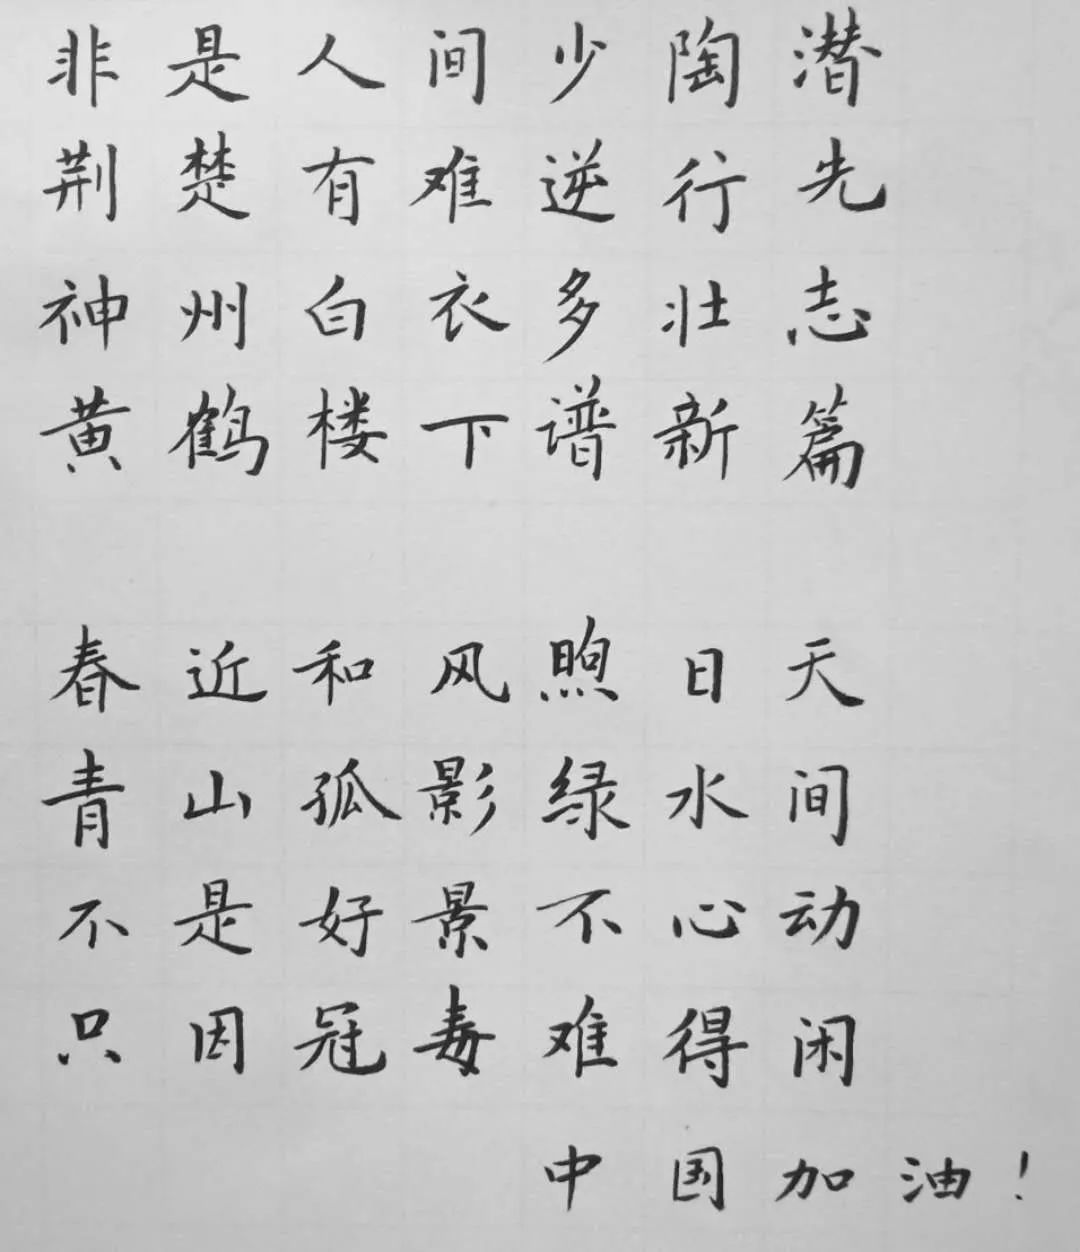 非是人间少陶潜
荆楚有难逆行先
神州白衣多壮志
黄鹤楼下谱新篇
春近和风煦日天
青山孤影绿水间
不是好景不心动
只因冠毒难得闲
中国加油！